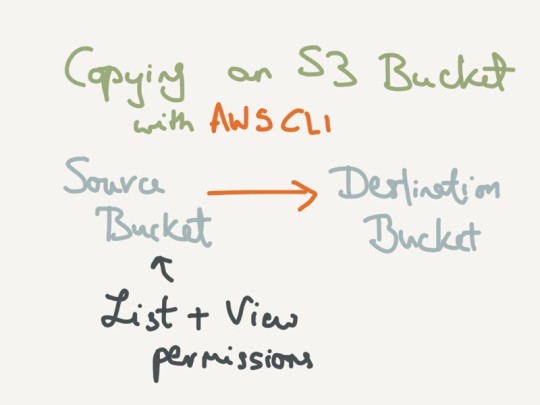 Copying an S3 Bucket
with AWS CLI
Source
Bucket
Destination
Bucket
List + View
permissions